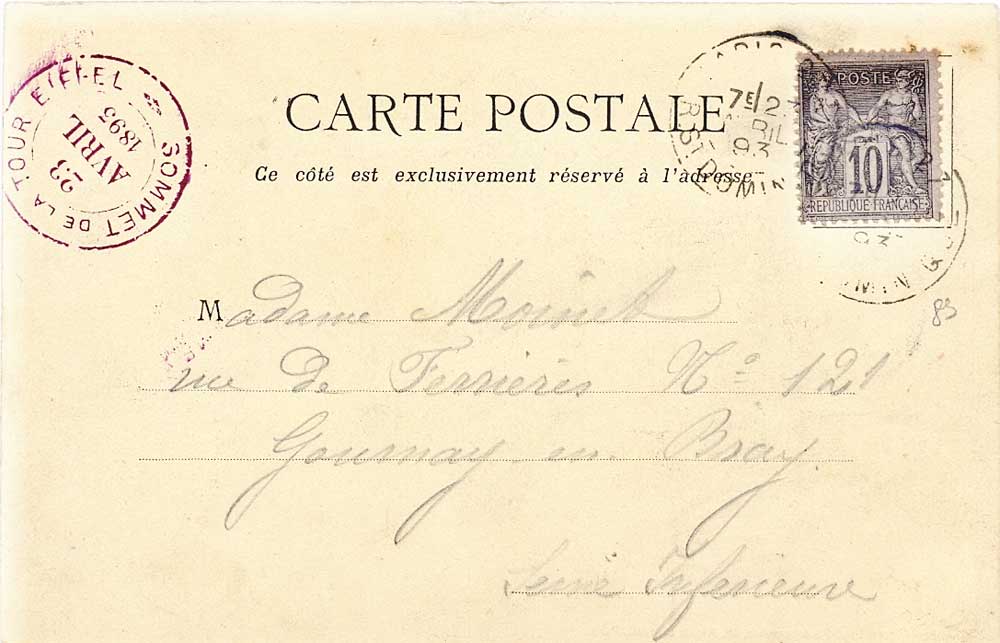 SOMMET DE LA TOUR EIFFEL
23
AVRIL
1895
CARTE POSTALE
Ce côté est exclusivement réservé à l'adresse
7E/2
93
POSTE
10
REPUBLIQUE FRANÇAISE
Madame Moinet
rue de Ferrières No 121
Gournay en Bray
Seine Inférieure